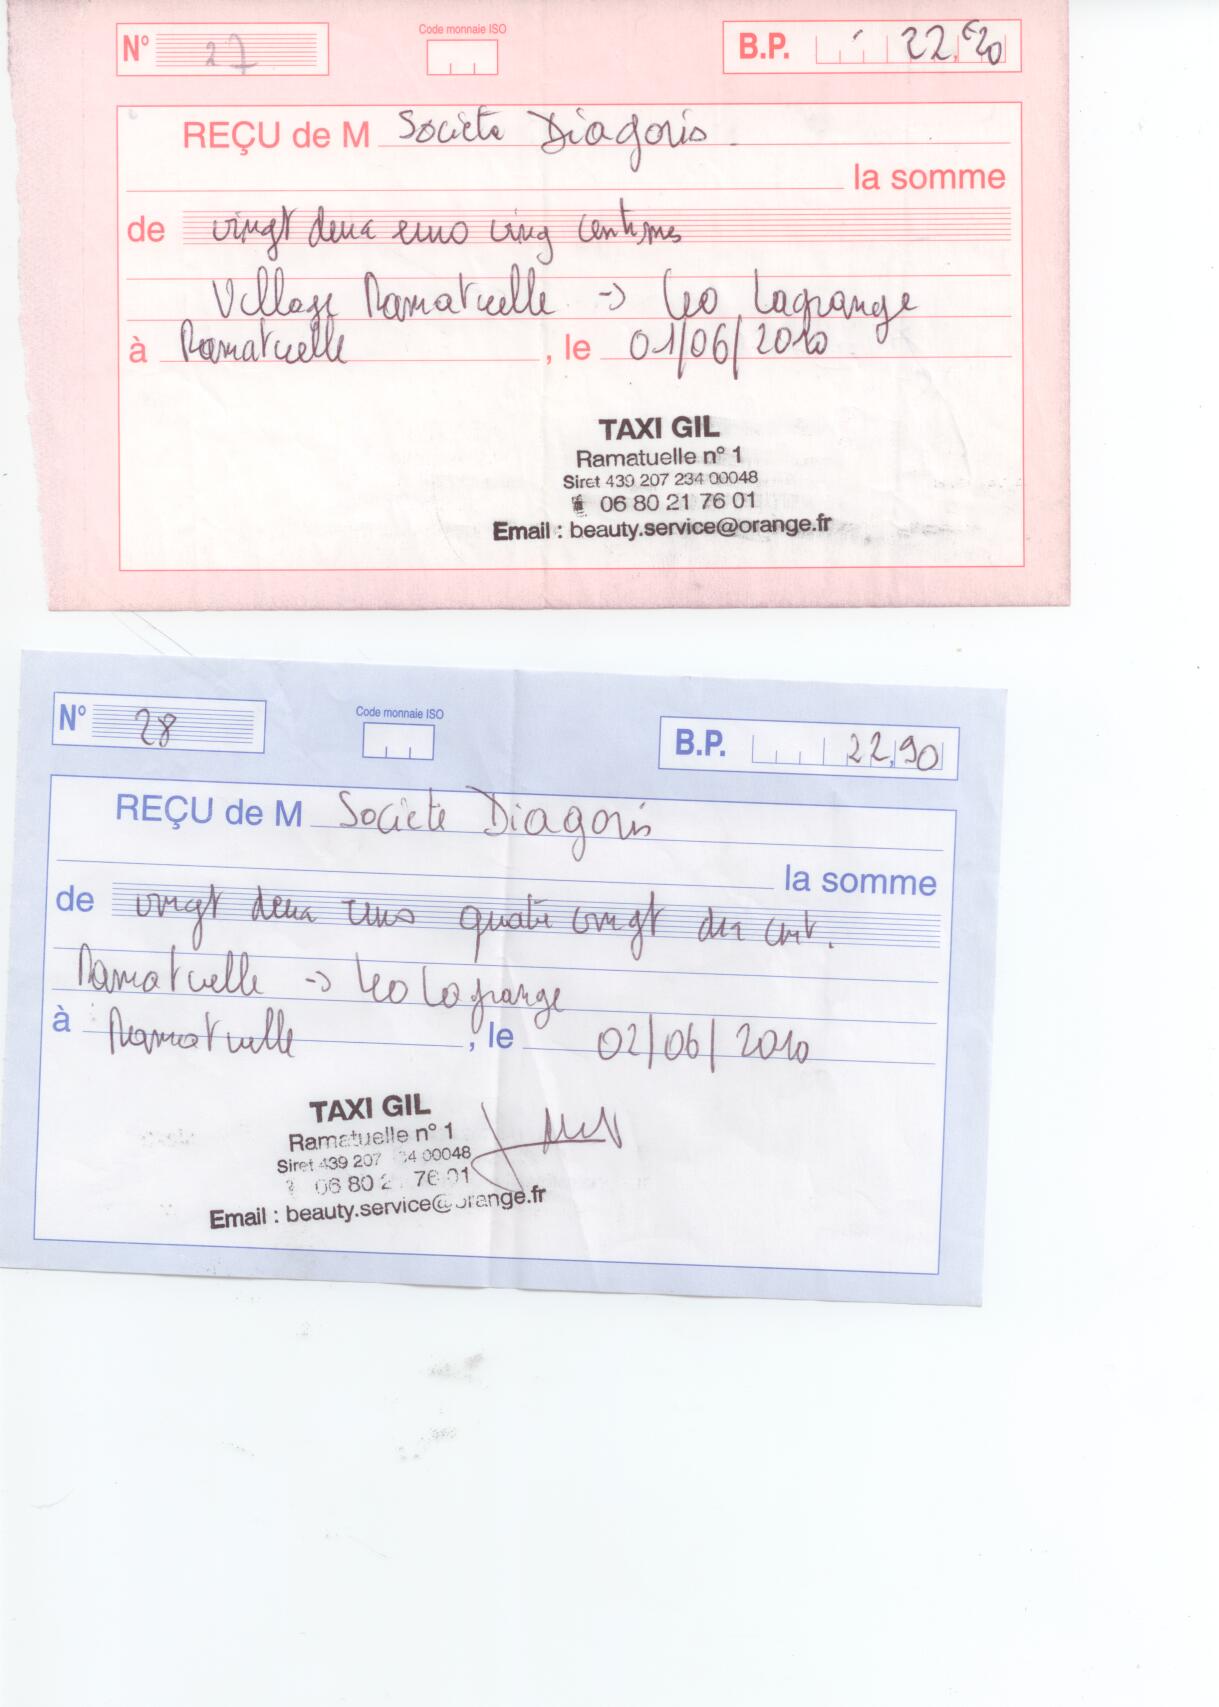 N° 27
Code monnaie ISO
B.P. 22,€20
REÇU de M Société Diagoris
la somme
de vingt deux euro ving centimes
Village Ramatuelle -> Leo Lagrange
à Ramatuelle, le 01/06/2010
TAXI GIL
Ramatuelle n° 1
Siret 439 207 234 00048
06 80 21 76 01
Email : beauty.service@orange.fr
N° 28
Code monnaie ISO
B.P. 22,90
REÇU de M Société Diagoris
la somme
de vingt deux euros quatre vingt dix cent.
Ramatuelle -> Leo Lagrange
à Ramatuelle, le 02/06/2010
TAXI GIL
Ramatuelle n° 1
Siret 439 207 34 00048
06 80 2 76 01
Email : beauty.service@orange.fr